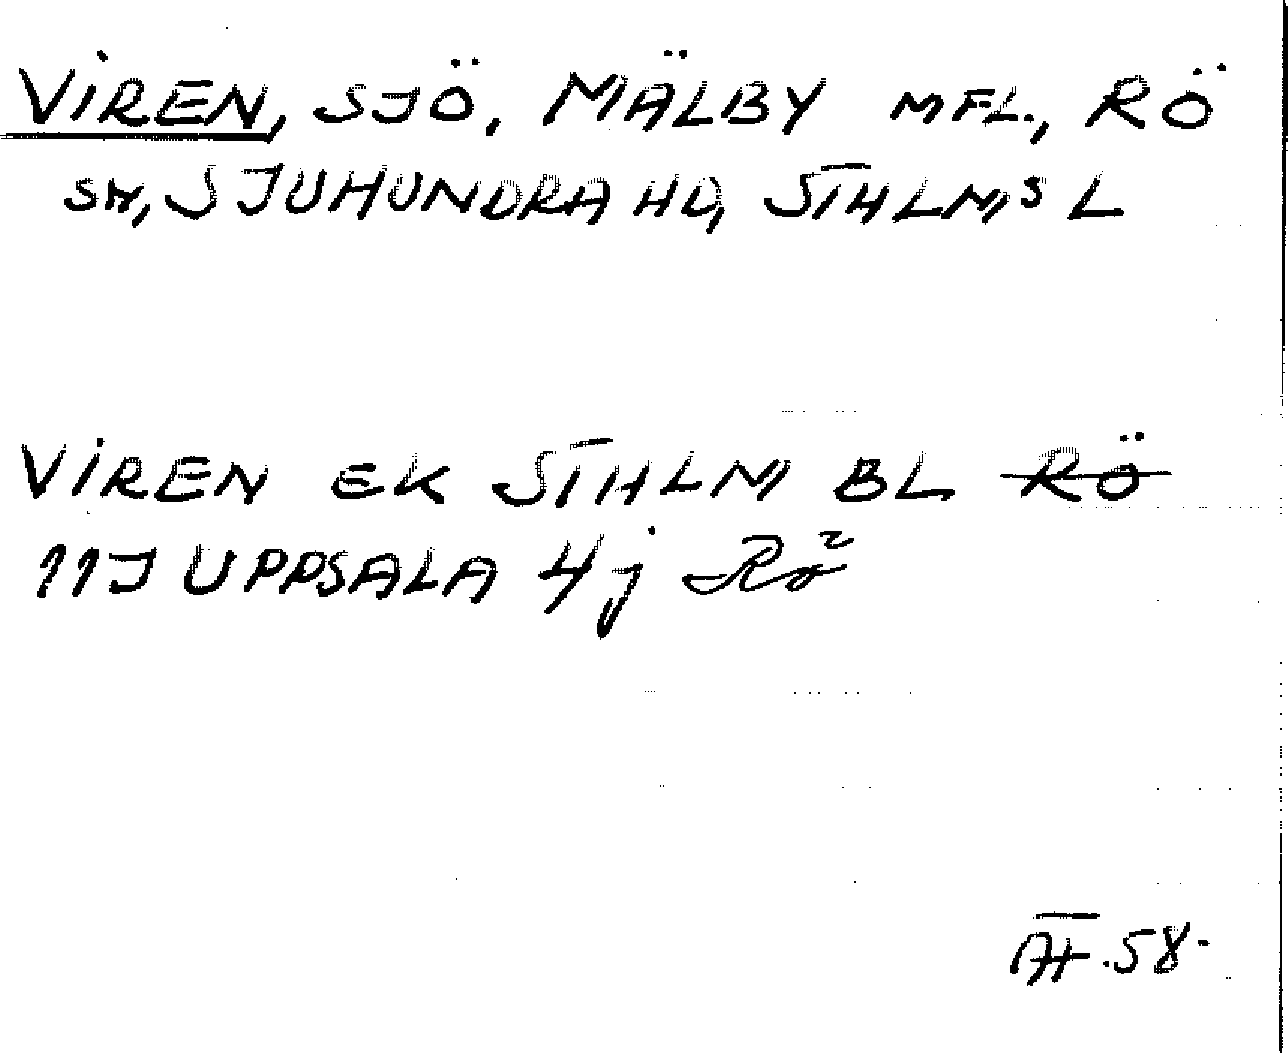 VIREN, SJÖ, MÄLBY MFL., RÖ
SN, SJUHUNDRA HD, STHLMS L
VIREN EK STHLM BL RÖ
11J UPPSALA 4j Rö²
AH.58.